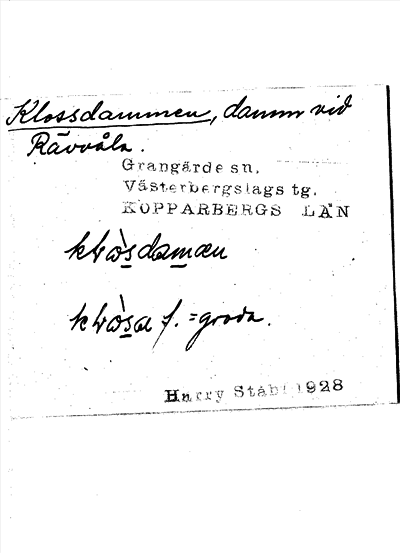 Klossdammen, damm vid
Rävvåla.
Grangärde sn,
Västerbergslags tg.
KOPPARBERGS LÄN
damæn
f. = groda.
Harry Ståhl 1928